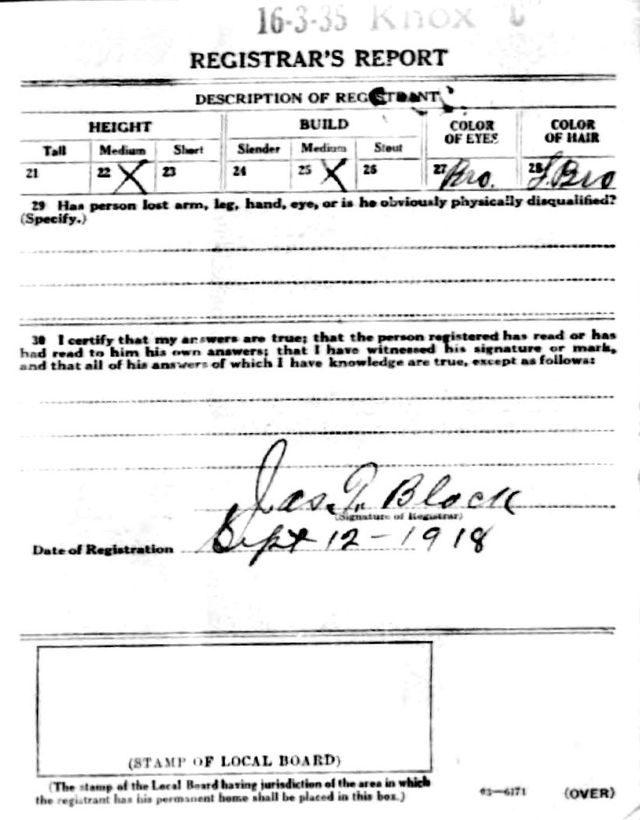 16-3-35 Knox C
REGISTRAR'S REPORT
DESCRIPTION OF REGISTRANT
HEIGHT BUILD COLOR OF EYES COLOR OF HAIR
Tall Medium Short Slender Medium Stout
21 22 X 23 24 25 X 26 27 Bro. 28 L. Bro
29 Has person lost arm, leg, hand, eye, or is he obviously physically disqualified?
(Specify.)
30 I certify that my answers are true; that the person registered has read or has
had read to him his own answers; that I have witnessed his signature or mark,
and that all of his answers of which I have knowledge are true, except as follows:
Jas. T. Black
(Signature of Registrar)
Date of Registration Sept 12-1918
(STAMP OF LOCAL BOARD)
(The stamp of the Local Board having jurisdiction of the area in which
the registrant has his permanent home shall be placed in this box.)
03—6171 (OVER)